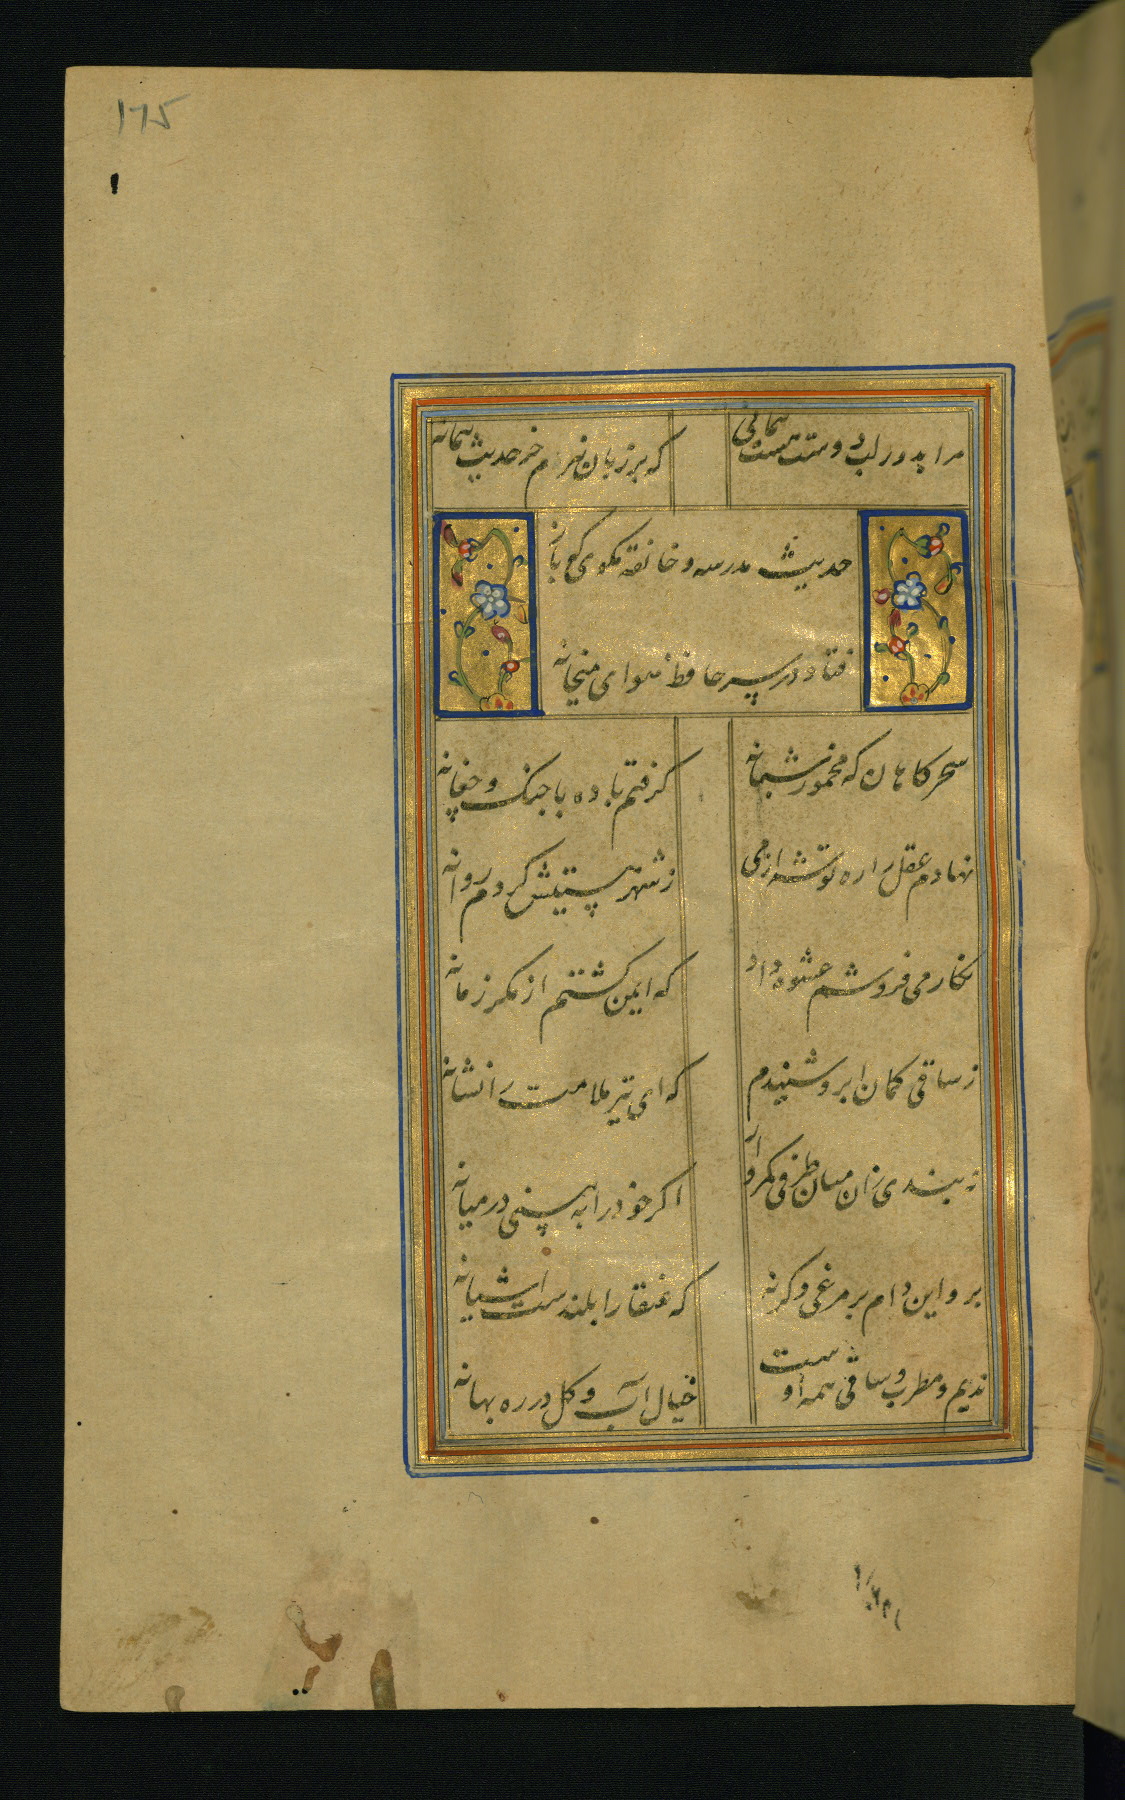 175
مرا بدور لب دوست هست پیمانی
که بر زبان نبرم جز حدیث پیمانه
حدیث مدرسه و خانقه مکوی که باز
فتاد در سر حافظ هوای میخانه
سحرکاهان که مخمور شبانه
کرفتم باده با چنک و چغانه
نهادم عقل را ره توشه از می
ز شهر هستیش کردم روانه
نکار می فروشم عشوه داد
که ایمن کشتم از مکر زمانه
ز ساقی کمان ابرو شنیدم
که ای تیر ملامت را نشانه
نه بندی زان میان طرفی کمروار
اکر خود را به بینی در میانه
برو این دام بر مرغی دکر نه
که عنقا را بلندست اشیانه
ندیم و مطرب و ساقی همه اوست
خیال اب و کل در ره بهانه